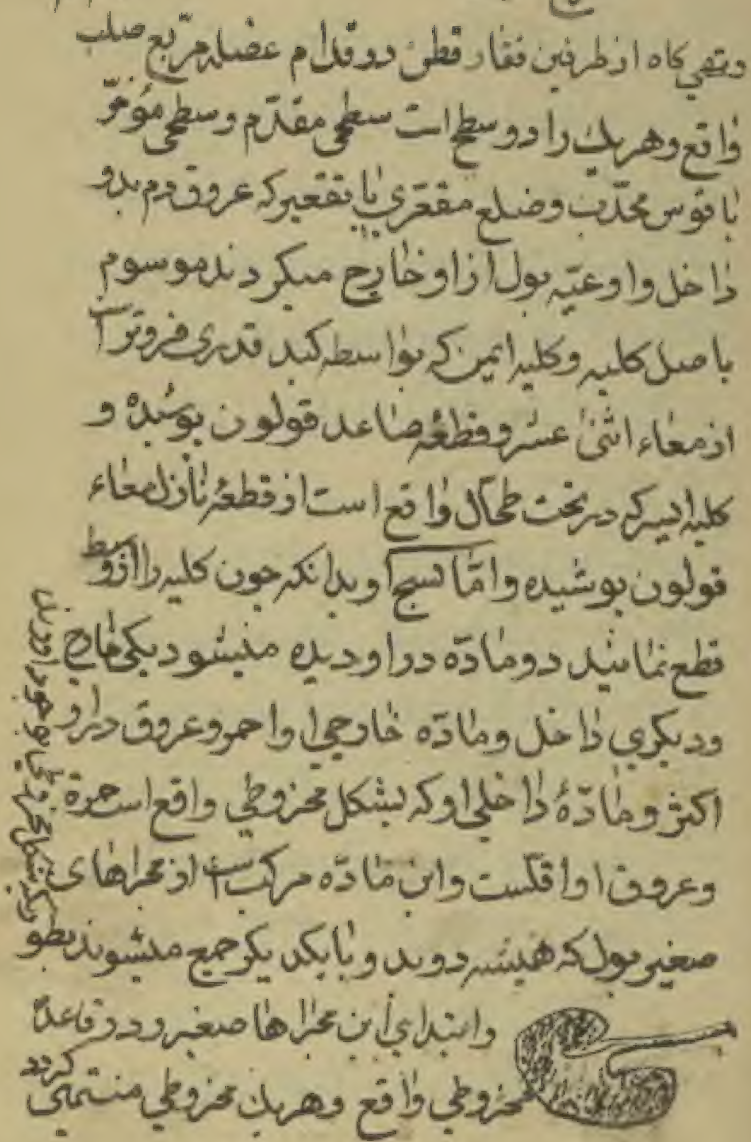 و تهی کاه از طرفین فقار قطن در قدام عضله مربع صلب
واقع و هر یک را دو سطح است سطحی مقدّم و سطحی مؤخّر
با قوس محدّب و ضلع مقعّری با تقعیر که عروق دم بدو
داخل و اوعیّه بول از او خارج میکردند موسوم
باصل کلیه و کلیه ایمن که بواسطه کبد قدری فروتر است
از معاء اثنی عشر و قطعه صاعد قولون پوشیده و
کلیه ایسر که در تحت طحال واقع است از قطعه نازل معاء
قولون پوشیده و امّا نسج او بدانکه چون کلیه را از وسط
قطع نمائید دو مادّه در او دیده میشود یکی خارج
و دیکری داخل و مادّه خارجی او احمر و عروق در او
اکثر و مادّهٔ داخلی او که بشکل مخروطی واقع است حمرة
و عروق او اقلست و این مادّه مرکب است از مجراهای
صغیر بول که همیشه دوبدو با یکدیکر جمع میشوند بطو
ریکه بشکل مخروطی بوجود آورند
و ابتدای این مجراها صغیر و در قاعدهٔ
مخروطی واقع و هر یک مخروطی منتهی کردد